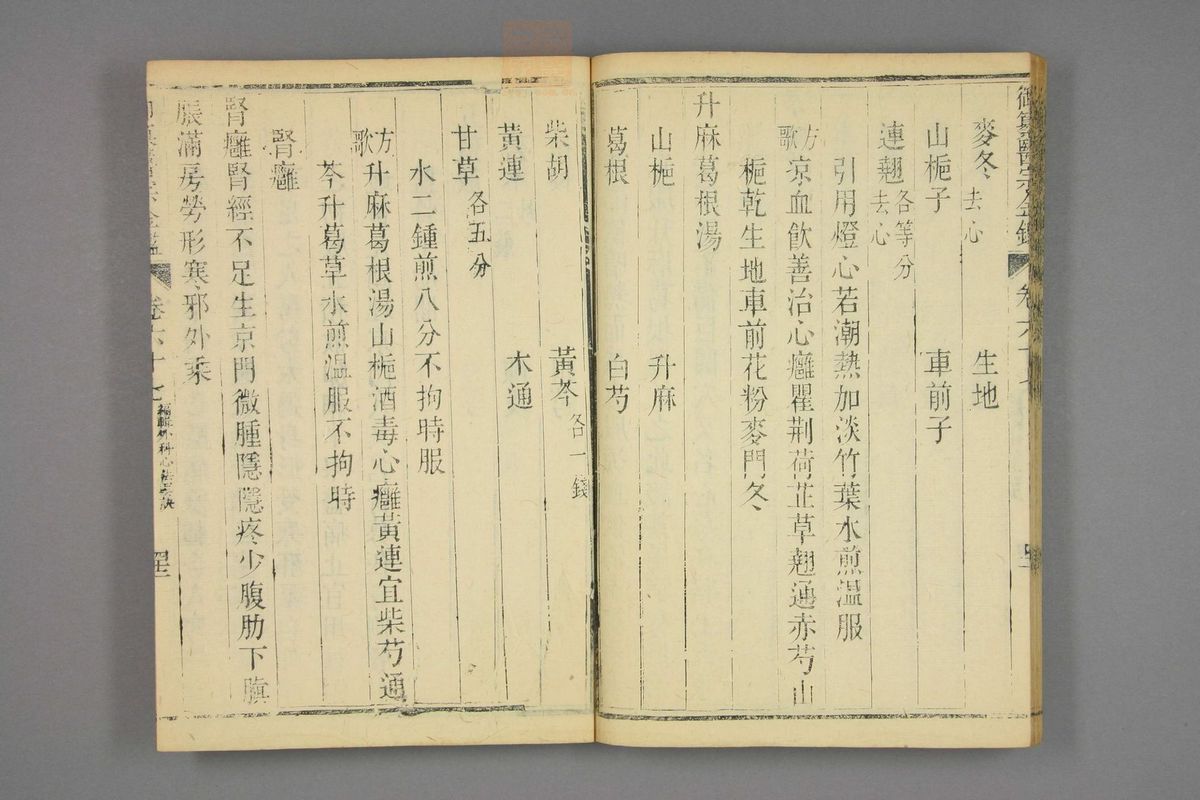 御纂醫宗金鑑 卷六十七
麥冬去心 生地
山梔子 車前子
連翹去心 各等分
引用燈心若潮熱加淡竹葉水煎溫服
方歌 涼血飲善治心癰瞿荆荷芷草翹通赤芍山
梔乾生地車前花粉麥門冬
升麻葛根湯
山梔 升麻
葛根 白芍
柴胡 黃芩各一錢
黃連 木通
甘草各五分
水二鍾煎八分不拘時服
方歌 升麻葛根湯山梔酒毒心癰黃連宜柴芍通
芩升葛草水煎溫服不拘時
腎癰
腎癰腎經不足生京門微腫隱隱疼少腹肋下䐜
脹滿房勞形寒邪外乘
卷六十七 編輯外科心法要訣